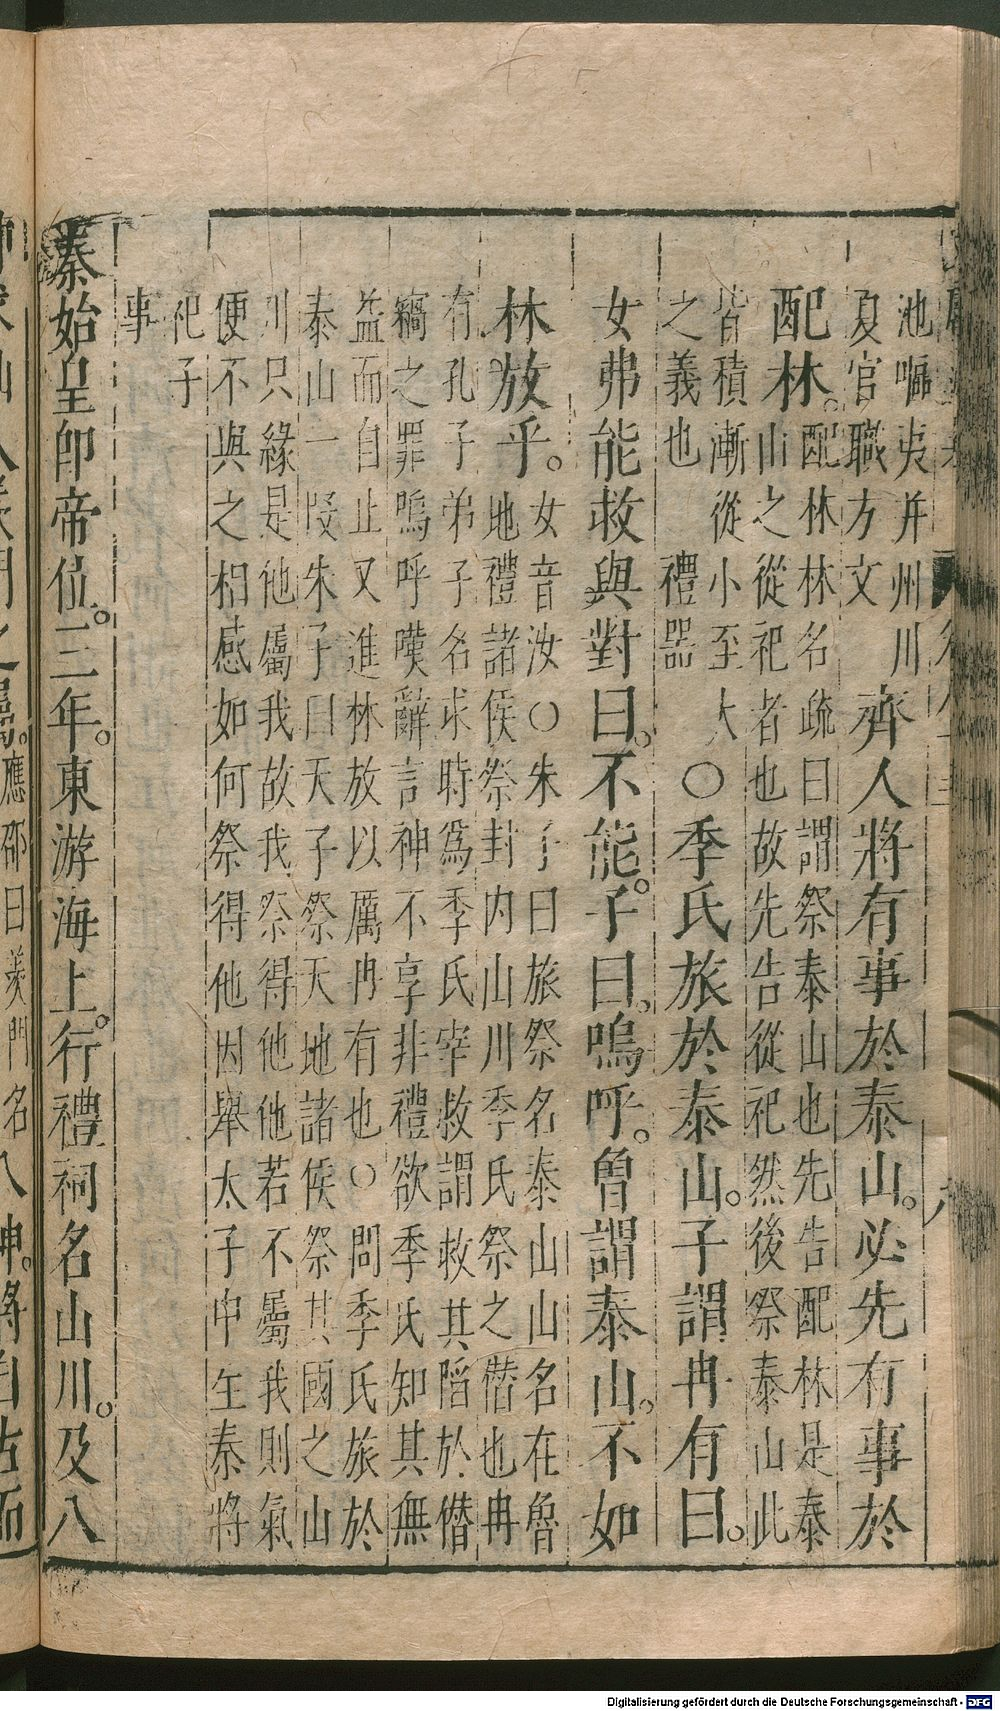 池嘔夷并州川
夏官職方文
齊人將有事於泰山。必先有事於
配林。
配林林名疏曰謂祭泰山也先告配林是泰
山之從祀者也故先告從祀然後祭泰山此
皆積漸從小至大
之義也 禮器
○季氏旅於泰山。子謂冉有曰。
女弗能救與對曰。不能。子曰。嗚呼。曾謂泰山。不如
林放乎。
女音汝○朱子曰旅祭名泰山山名在魯
地禮諸侯祭封内山川季氏祭之僭也冉
有孔子弟子名求時爲季氏宰救謂救其陷於僭
竊之罪嗚呼嘆辭言神不享非禮欲季氏知其無
益而自止又進林放以厲冉有也○問季氏旅於
泰山一段朱子曰天子祭天地諸侯祭其國之山
川只緣是他屬我故我祭得他他若不屬我則氣
便不與之相感如何祭得他因舉太子申生秦將
祀予
事
秦始皇即帝位。三年。東游海上。行禮祠名山川。及八
應邵曰羨門名
Digitalisierung gefördert durch die Deutsche Forschungsgemeinschaft - DFG